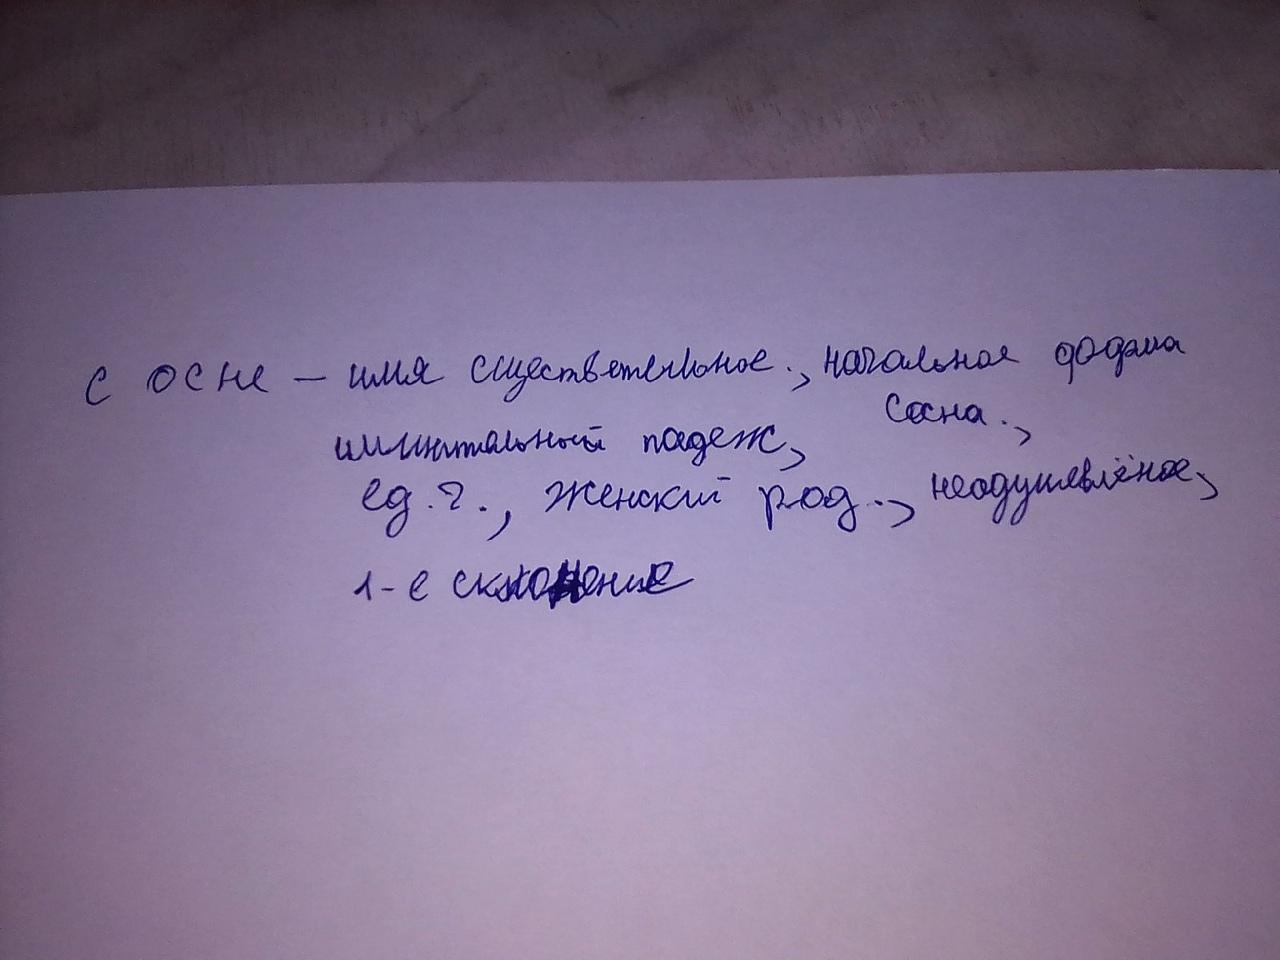 с осне – имя существетельное., начальноя форма
сосна.,
иминтальный падеж,
ед.ч., женский род., неодушевлёное,
1-е склонение